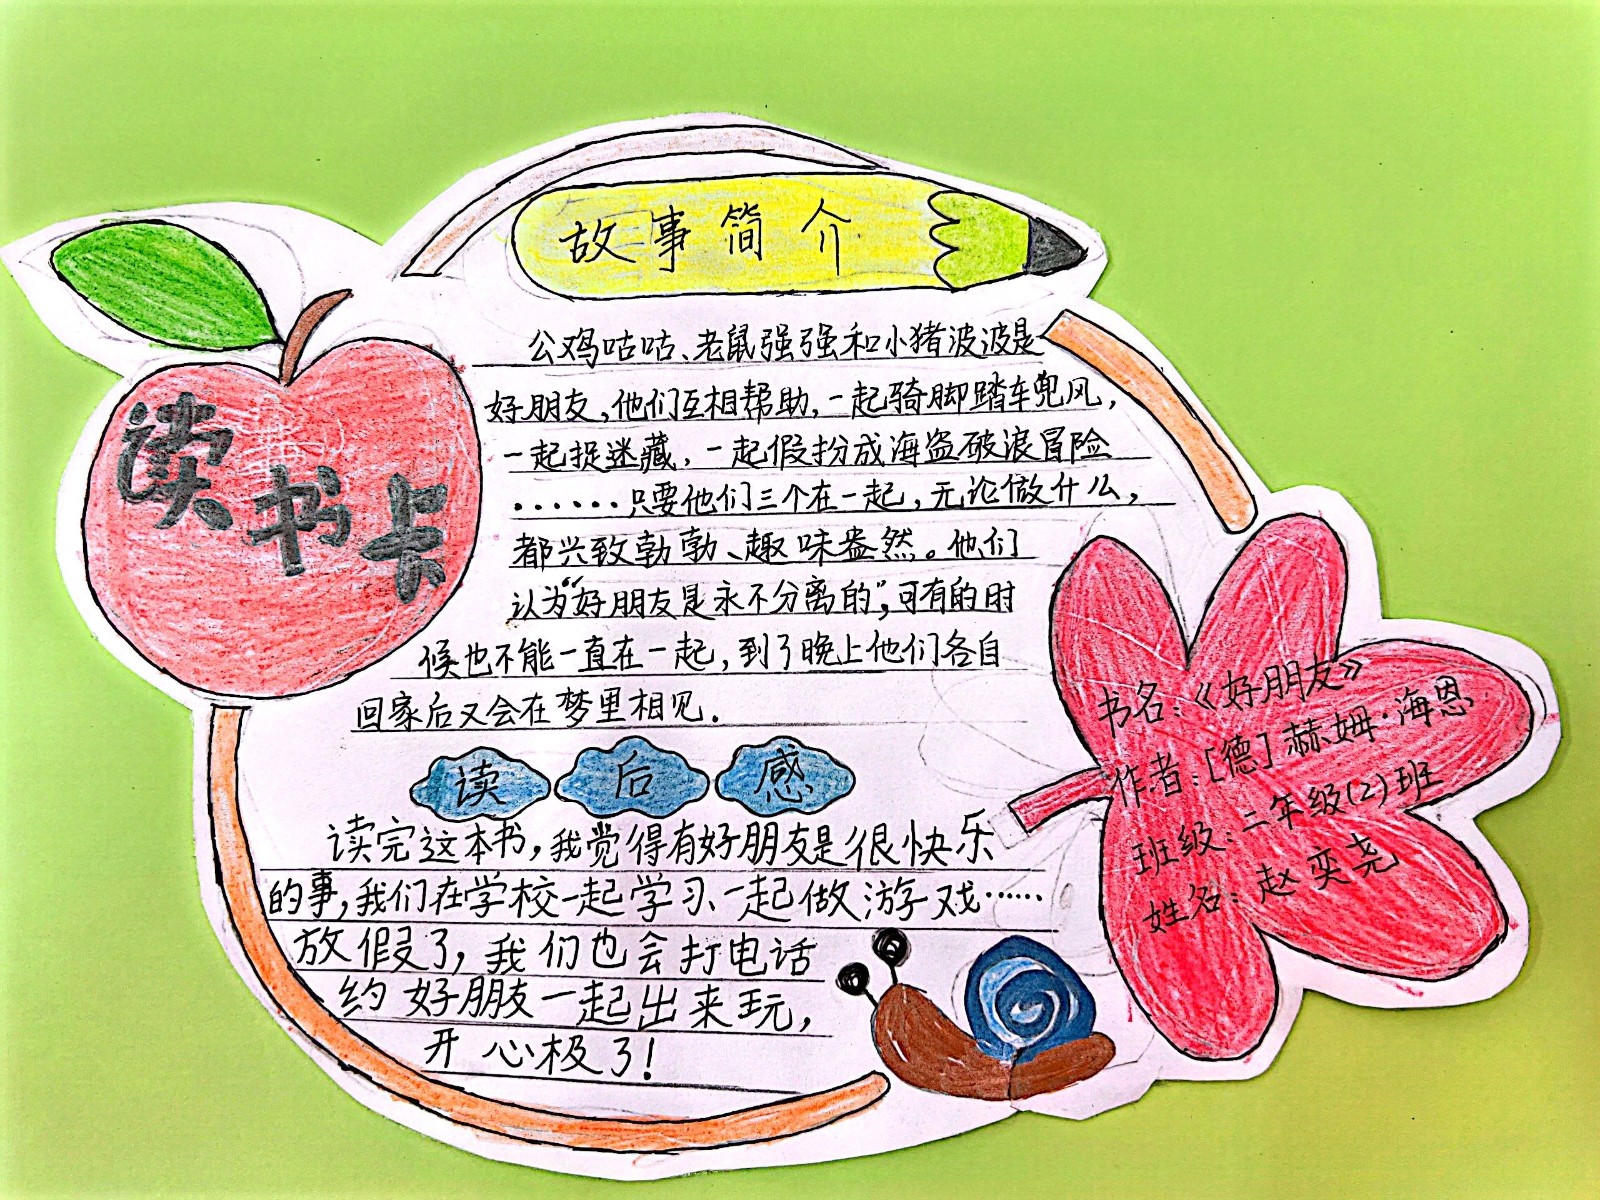 读书卡
故事简介
公鸡咕咕、老鼠强强和小猪波波是
好朋友，他们互相帮助，一起骑脚踏车兜风，
一起捉迷藏，一起假扮成海盗破浪冒险
……只要他们三个在一起，无论做什么，
都兴致勃勃、趣味盎然。他们
认为“好朋友是永不分离的”，可有的时
候也不能一直在一起，到了晚上他们各自
回家后又会在梦里相见.
读后感
读完这本书，我觉得有好朋友是很快乐
的事，我们在学校一起学习、一起做游戏……
放假了，我们也会打电话
约好朋友一起出来玩，
开心极了！
书名：《好朋友》
作者：[德]赫姆·海恩
班级：二年级(2)班
姓名：赵奕尧